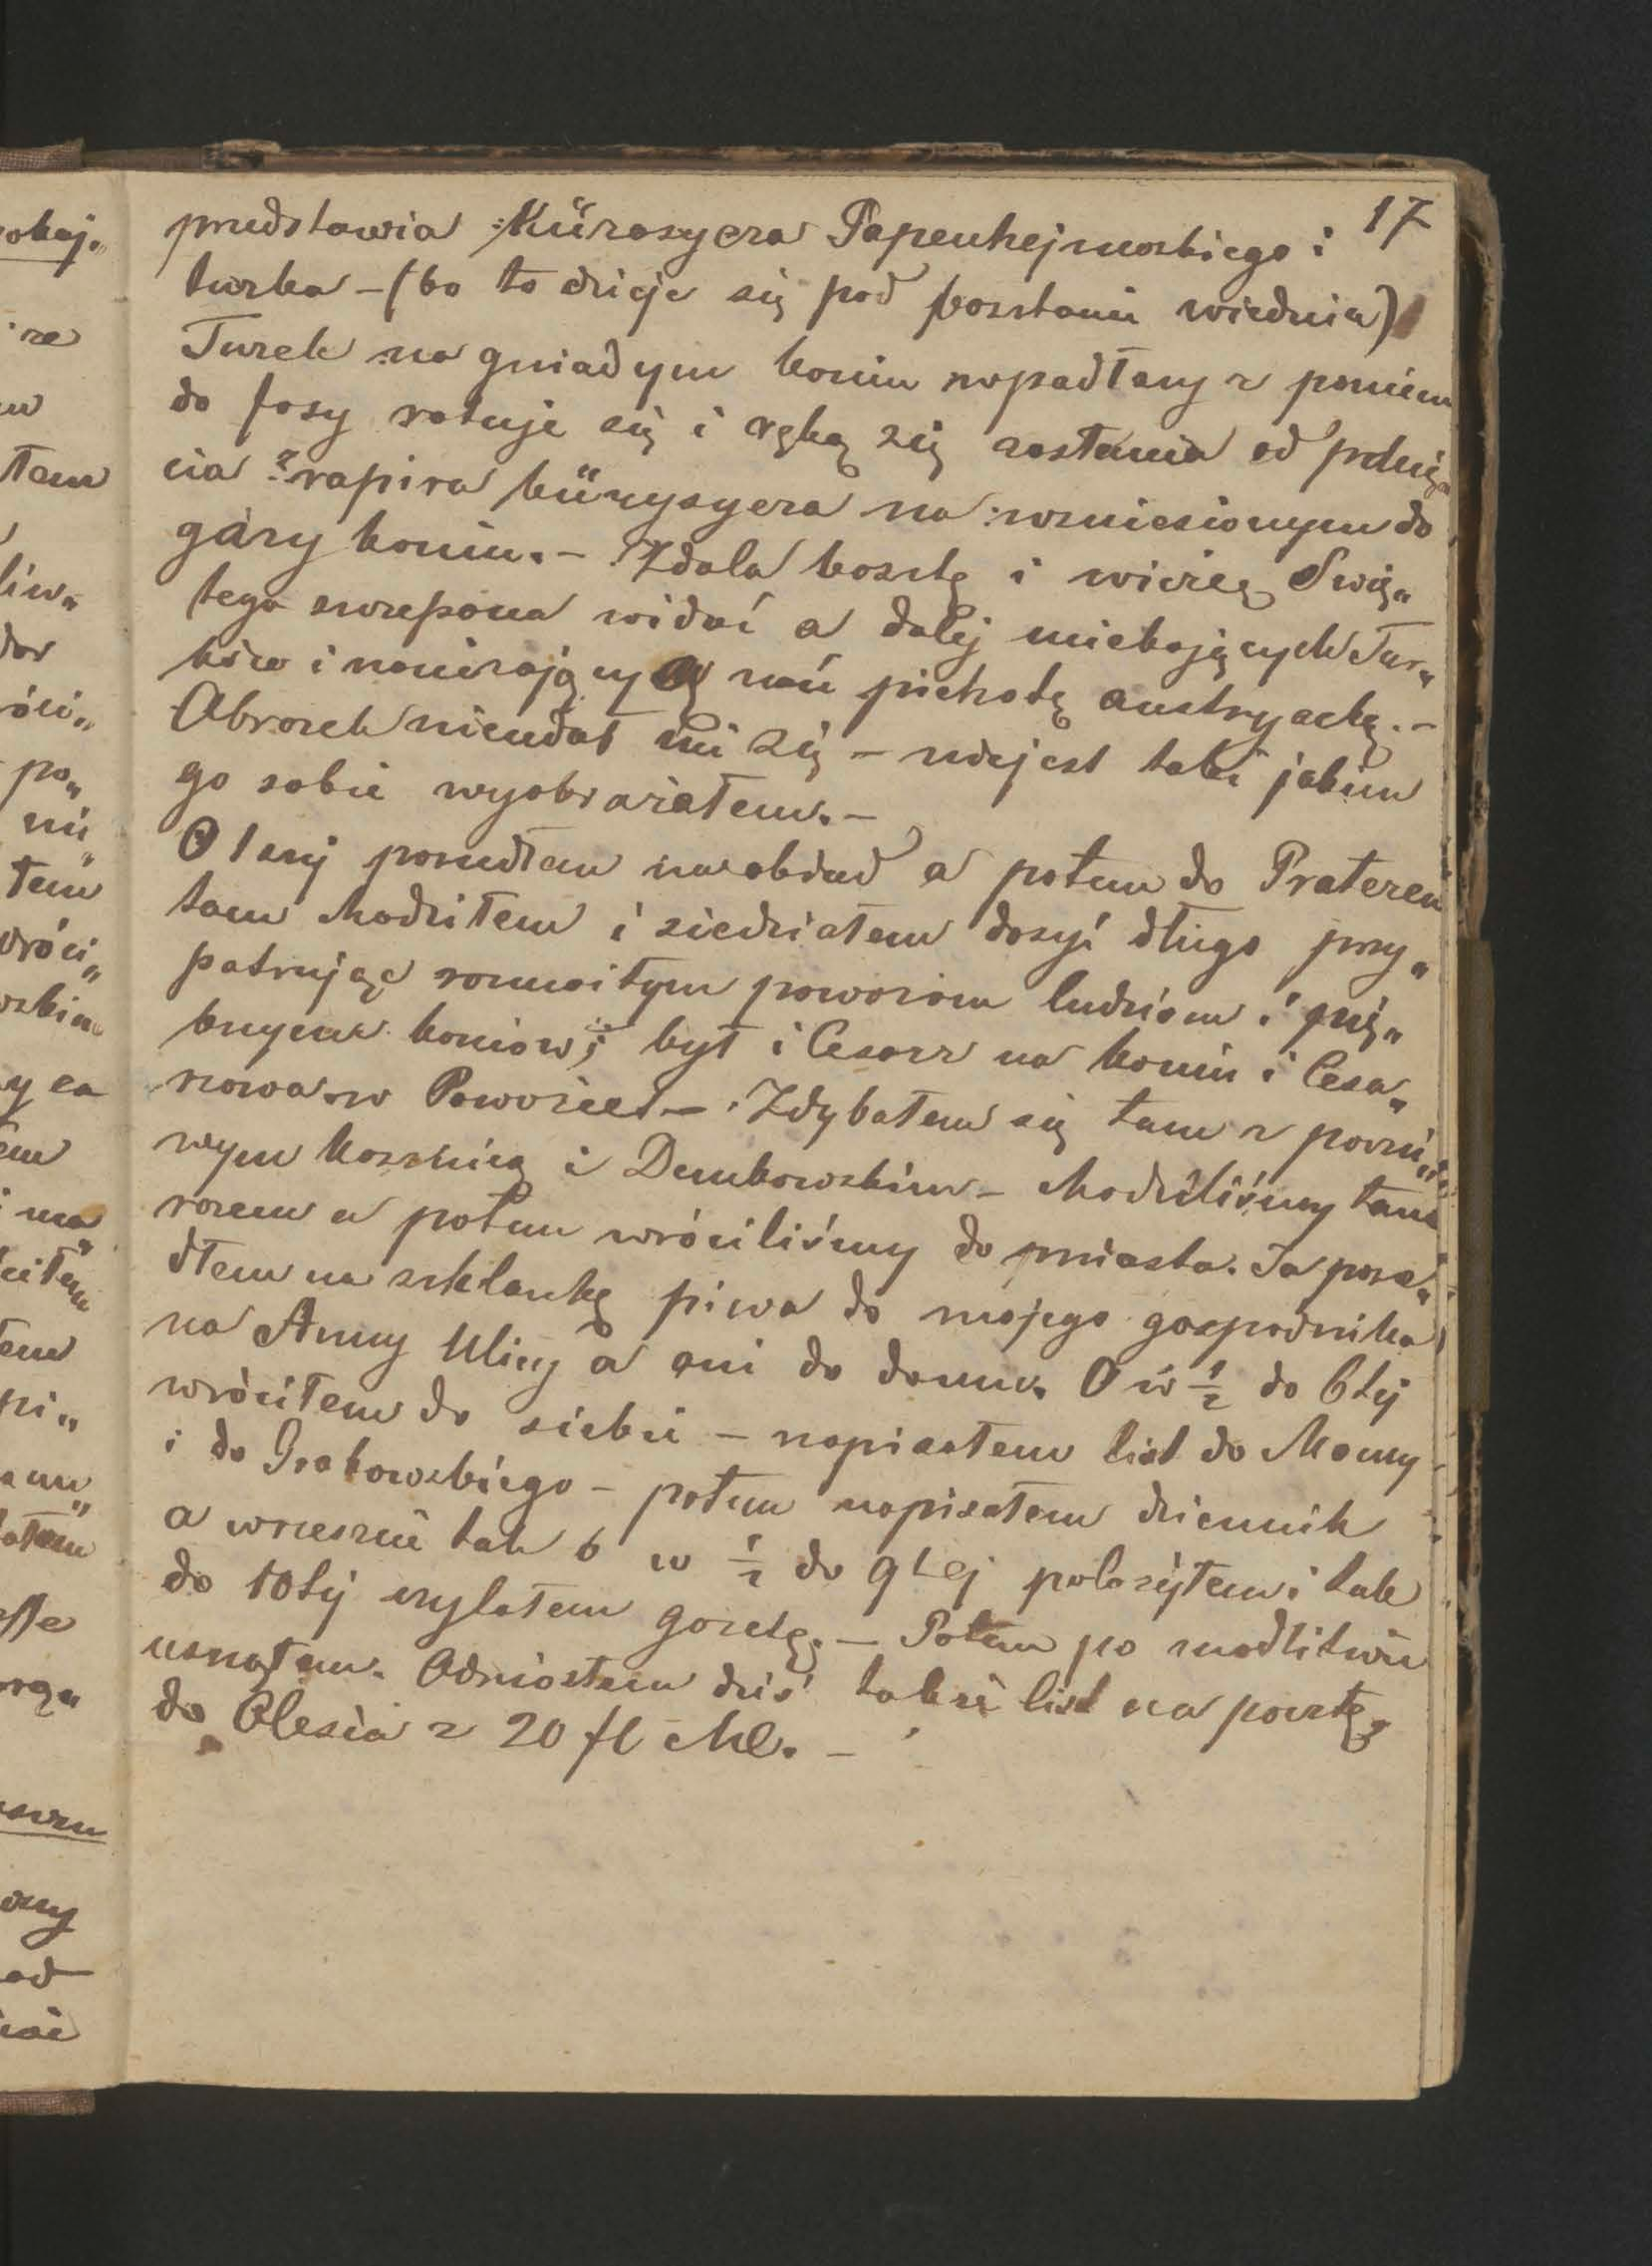 17
przedstawia Kürasyera Papenhejmskiego i
turka – (bo to dzieje się pod basztami wiednia)
Turek na gniadym koniu wpadłszy z
do fosy ratuje się i ręką się zasłania od pchnię„
cia rapira küryzyera na wzniesionym do
góry koniu. – Zdala basztę i wieżę Swię„
tego widać a dalej uciekających Tur„
ków i piechotę austryacką. –
Obrazek nieudał mi się – niejest taki jakim
go sobie wyobrażałem. –
O 1szej poszedłem na obiad a potem do Prateren
tam chodziłem i siedziałem dosyć długo przy„
patrując rozmaitym powozom ludziom i pię„
knym koniow; był i Cesarz na koniu i Cesa„
rzowa w Powozie. – Zdybałem się tam z
wym i Dembowskim – chodziliśmy tam
razem a potem wróciliśmy do miasta. Ja posze„
dłem na szklankę piwa do mojego gospodnika
na Anny Ulicy a oni do domu. O w ½ do 6tej
wróciłem do siebie – napisałem list do Mamy
i do Grabowskiego – potem napisałem dziennik
a wreszcie tak o w ½ do 9tej położyłem i tak
do 10tej czytałem gazetę. – Potem po modlitwie
usnąłem. Odniosłem dziś także list na pocztę
do Olesia z 20 fl Mc. –